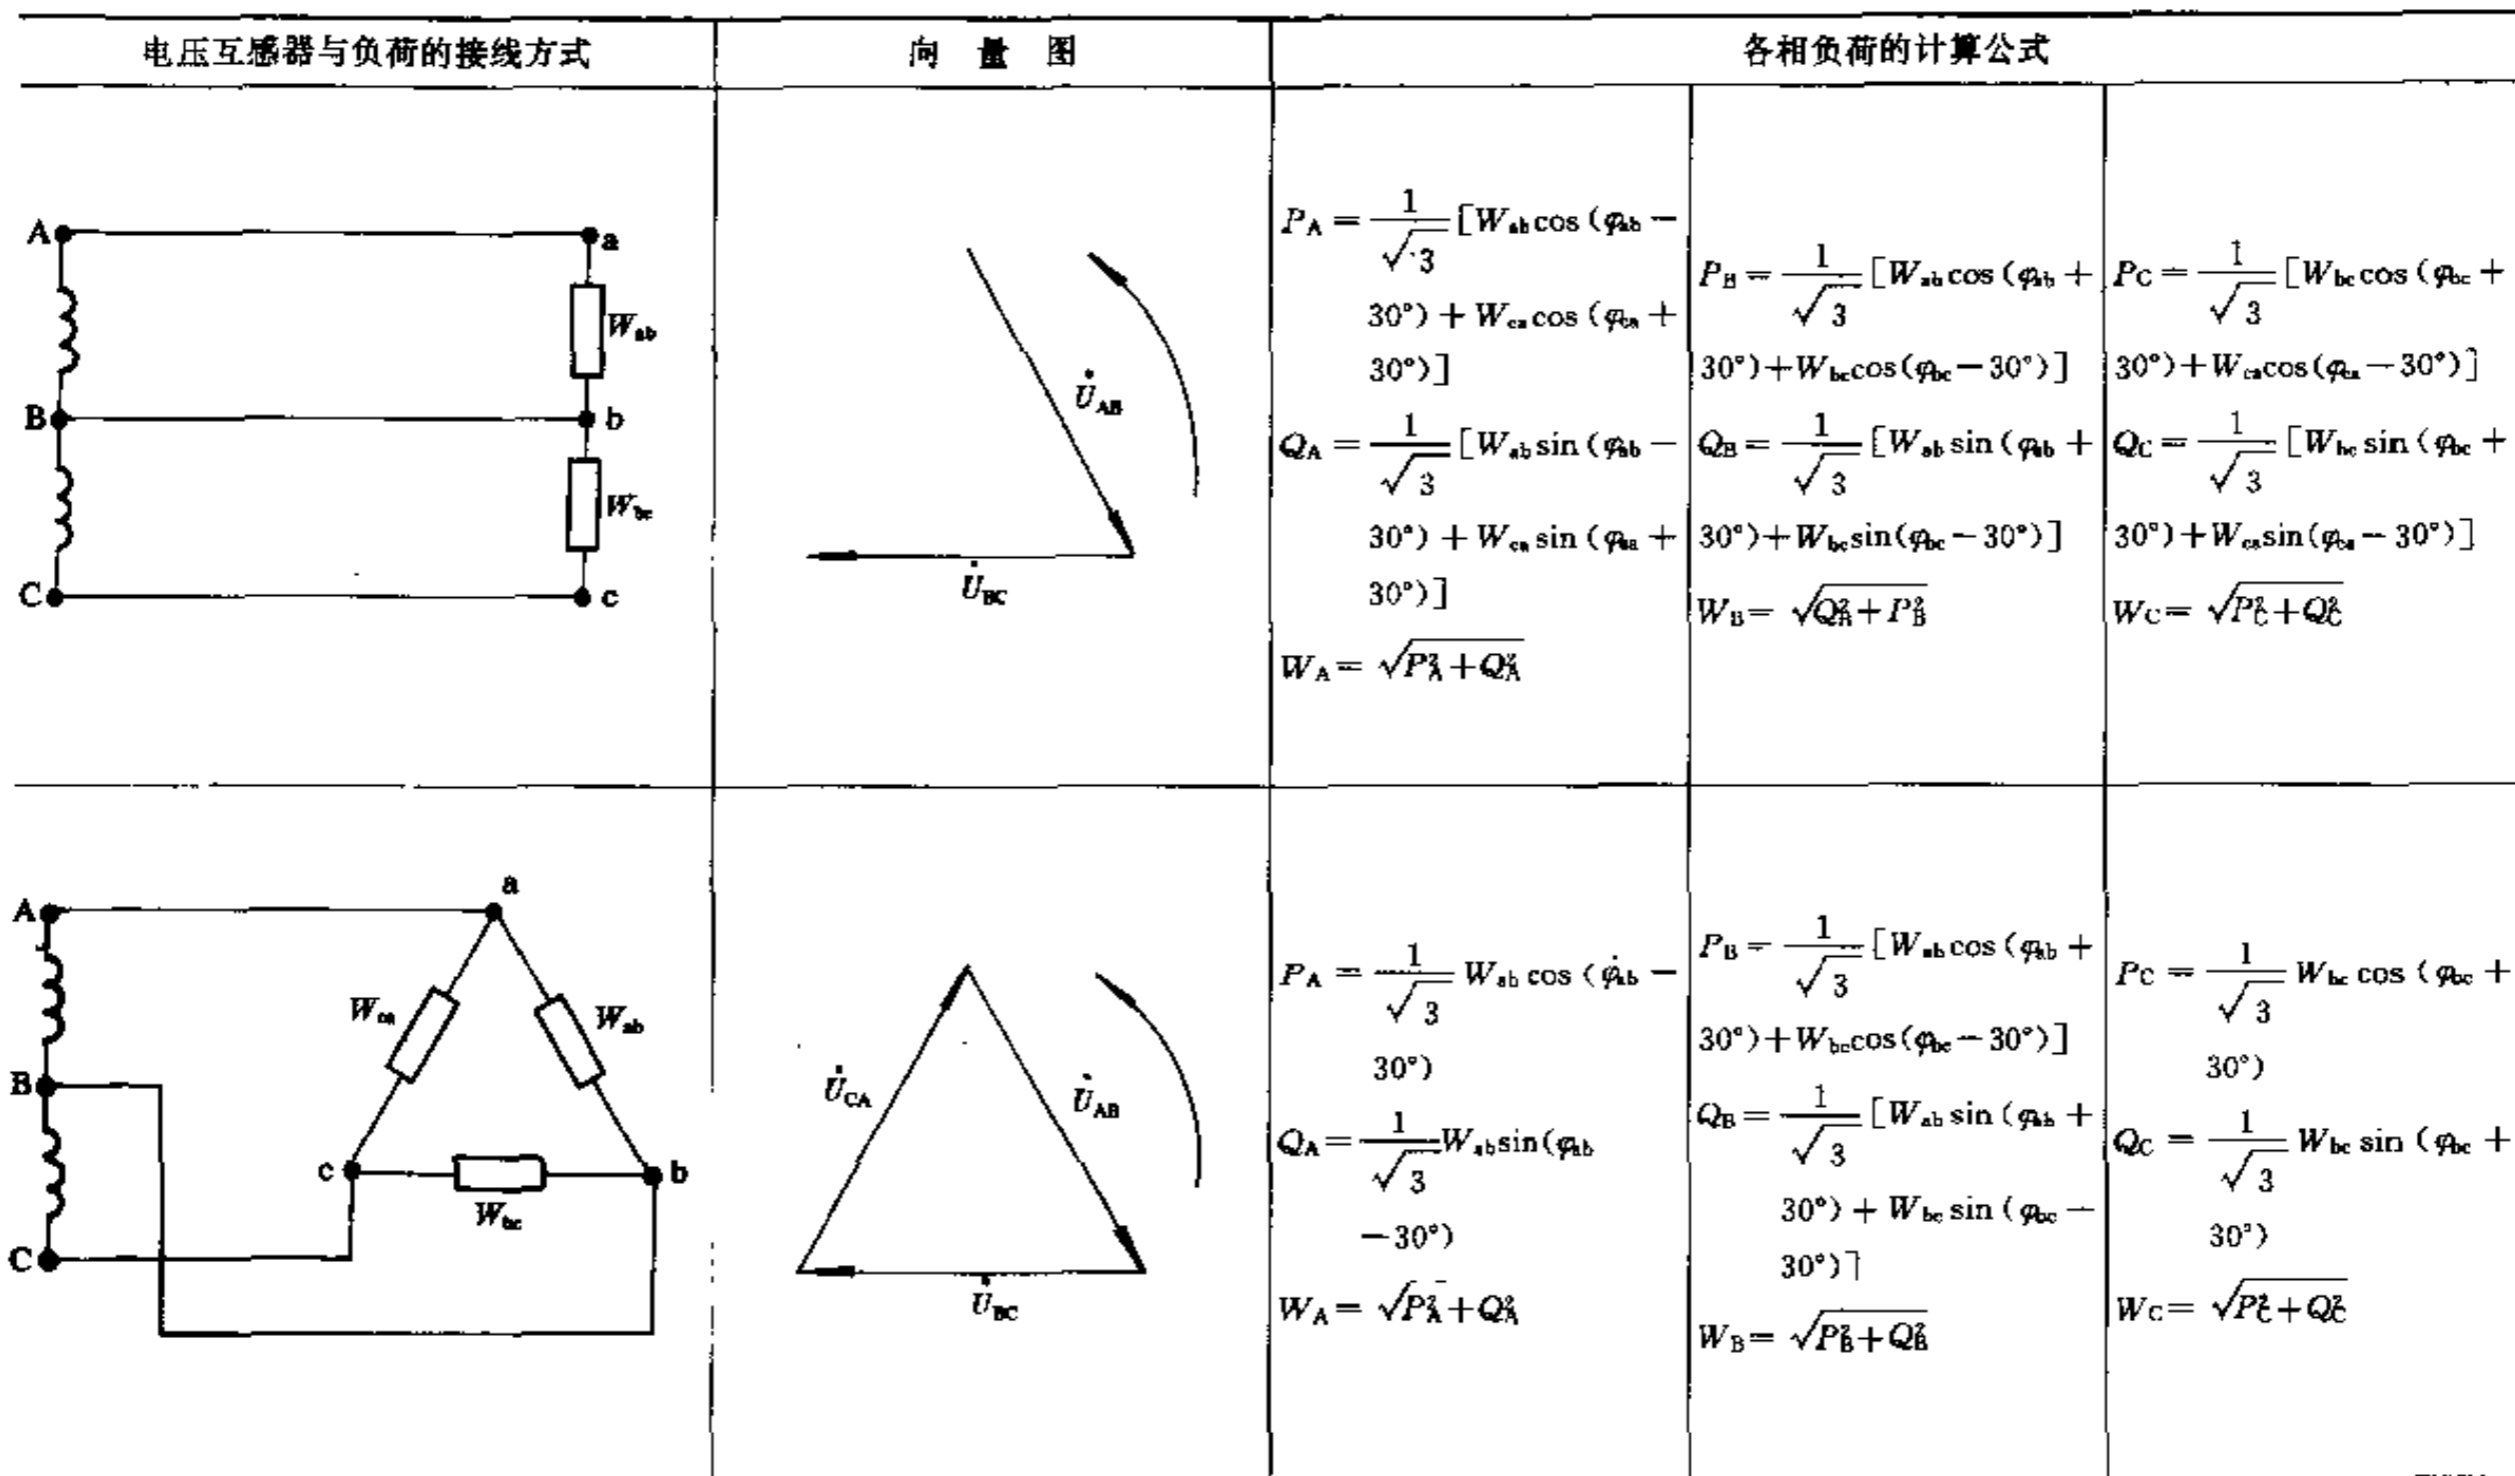 电压互感器与负荷的接线方式
向 量 图
各相负荷的计算公式
A
a
W_ab
B
b
W_bc
C
c
U̇_AB
U̇_BC
P_A = 1/√3 [W_ab cos (φ_ab −
30°) + W_ca cos (φ_ca +
30°)]
Q_A = 1/√3 [W_ab sin (φ_ab −
30°) + W_ca sin (φ_ca +
30°)]
W_A = √(P²_A + Q²_A)
P_B = 1/√3 [W_ab cos (φ_ab +
30°) + W_bc cos (φ_bc − 30°)]
Q_B = 1/√3 [W_ab sin (φ_ab +
30°) + W_bc sin (φ_bc − 30°)]
W_B = √(Q²_B + P²_B)
P_C = 1/√3 [W_bc cos (φ_bc +
30°) + W_ca cos (φ_ca − 30°)]
Q_C = 1/√3 [W_bc sin (φ_bc +
30°) + W_ca sin (φ_ca − 30°)]
W_C = √(P²_C + Q²_C)
a
A
W_ca
W_ab
B
c
b
W_bc
C
U̇_CA
U̇_AB
U̇_BC
P_A = 1/√3 W_ab cos (φ̇_ab −
30°)
Q_A = 1/√3 W_ab sin (φ_ab
−30°)
W_A = √(P²_A + Q²_A)
P_B = 1/√3 [W_ab cos (φ_ab +
30°) + W_bc cos (φ_bc − 30°)]
Q_B = 1/√3 [W_ab sin (φ_ab +
30°) + W_bc sin (φ_bc −
30°)]
W_B = √(P²_B + Q²_B)
P_C = 1/√3 W_bc cos (φ_bc +
30°)
Q_C = 1/√3 W_bc sin (φ_bc +
30°)
W_C = √(P²_C + Q²_C)